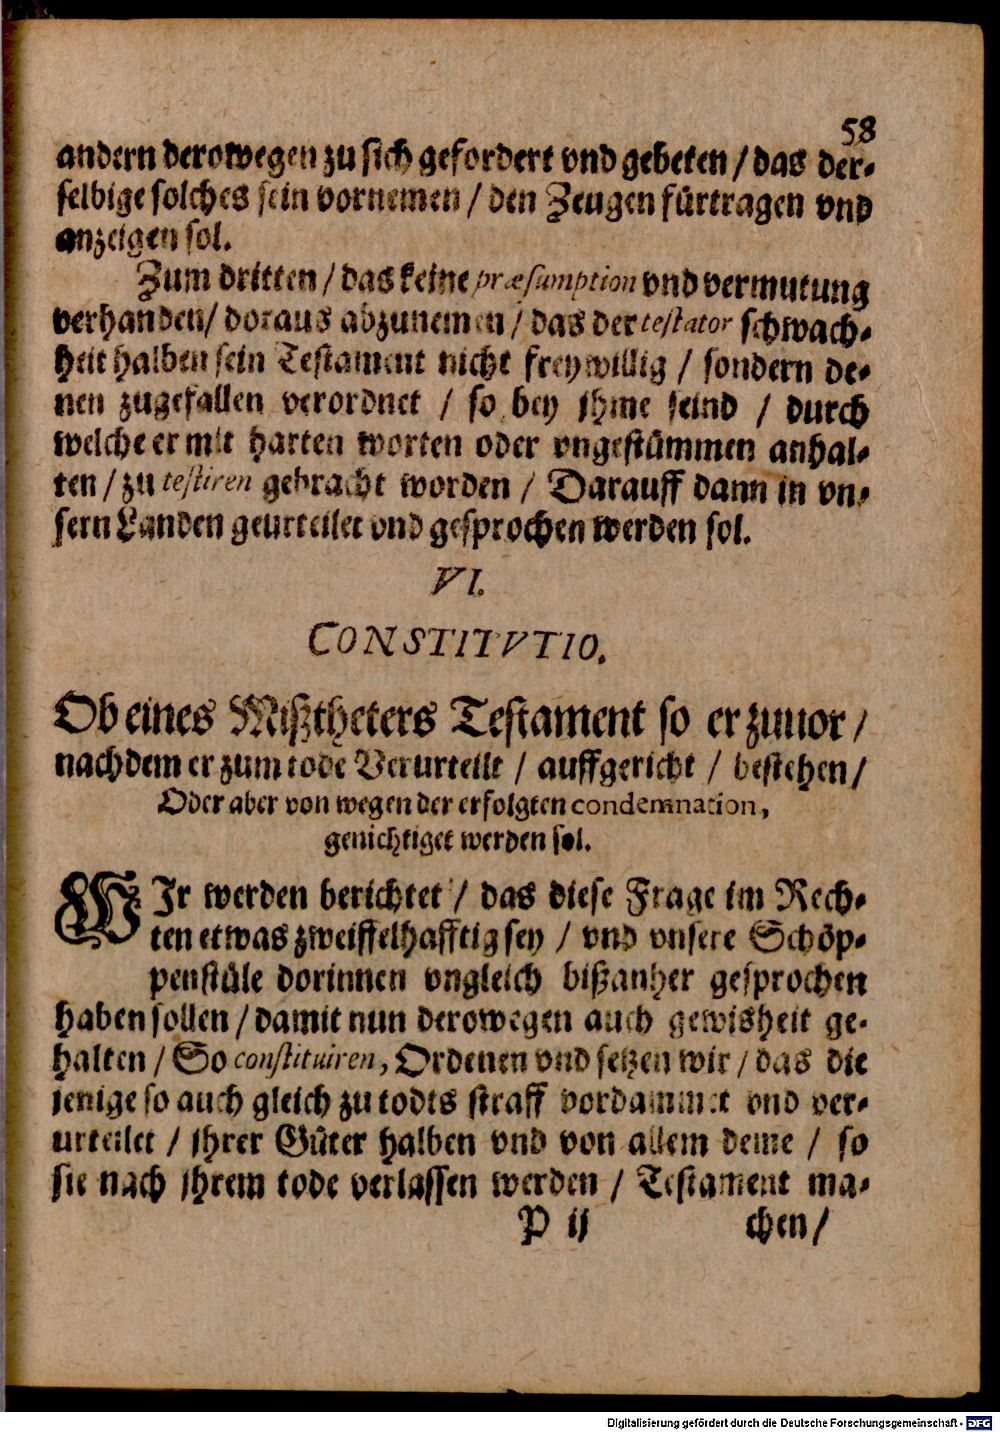 58
andern derowegen zu sich gefordert vnd gebeten / das der-
selbige solches sein vornemen / den Zeugen fürtragen vnd
anzeigen sol.
Zum dritten / das keine præsumption vnd vermutung
verhanden / doraus abzunemen / das der testator schwach-
heit halben sein Testament nicht freywillig / sondern de-
nen zugefallen verordnet / so bey jhme seind / durch
welche er mit harten worten oder vngestümmen anhal-
ten / zu testiren gebracht worden / Darauff dann in vn-
sern Landen geurteilet vnd gesprochen werden sol.
VI.
CONSTITVTIO.
Ob eines Mißtheters Testament so er zuuor /
nachdem er zum tode Verurteilt / auffgericht / bestehen /
Oder aber von wegen der erfolgten condemnation,
genichtiget werden sol.
WIr werden berichtet / das diese Frage im Rech-
ten etwas zweiffelhafftig sey / vnd vnsere Schöp-
penstüle dorinnen vngleich bißanher gesprochen
haben sollen / damit nun derowegen auch gewisheit ge-
halten / So constituiren, Ordenen vnd setzen wir / das die
jenige so auch gleich zu todts straff vordammet vnd ver-
urteilet / jhrer Güter halben vnd von allem deme / so
sie nach jhrem tode verlassen werden / Testament ma-
P ij chen /
Digitalisierung gefördert durch die Deutsche Forschungsgemeinschaft - DFG